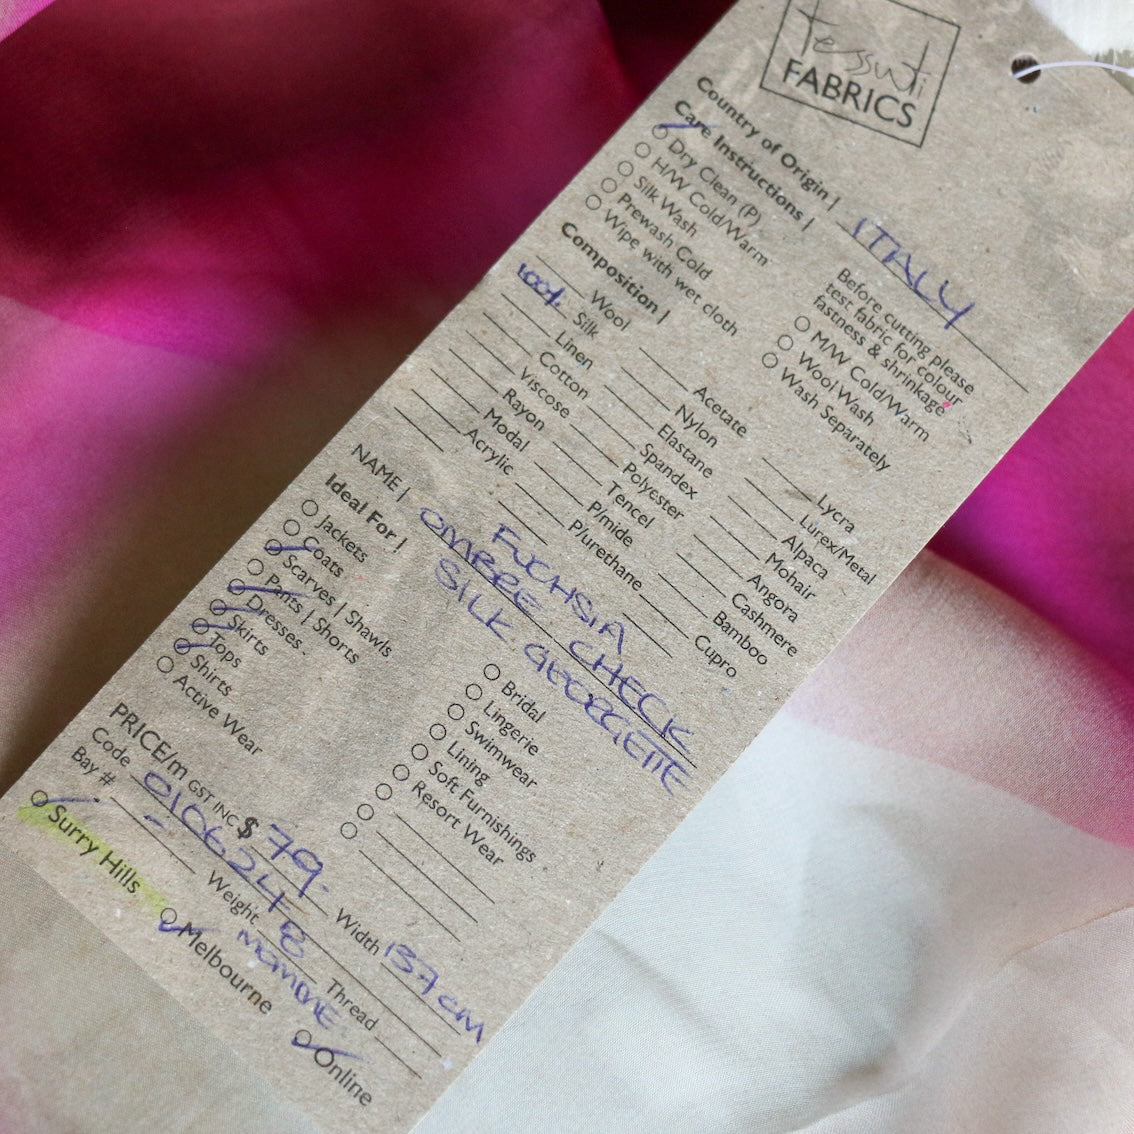 Tessuti
FABRICS
Country of Origin | ITALY
Care Instructions |
Dry Clean (P)
H/W Cold/Warm
Silk Wash
Prewash Cold
Wipe with wet cloth
Before cutting please
test fabric for colour
fastness & shrinkage
M/W Cold/Warm
Wool Wash
Wash Separately
Composition |
Wool
100% Silk
Linen
Cotton
Viscose
Rayon
Modal
Acrylic
Acetate
Nylon
Elastane
Spandex
Polyester
Tencel
P/mide
P/urethane
Lycra
Lurex/Metal
Alpaca
Mohair
Angora
Cashmere
Bamboo
Cupro
NAME | FUCHSIA
OMBRE CHECK
SILK GEORGETTE
Ideal For |
Jackets
Coats
Scarves | Shawls
Pants | Shorts
Dresses
Skirts
Tops
Shirts
Active Wear
Bridal
Lingerie
Swimwear
Lining
Soft Furnishings
Resort Wear
PRICE/m GST INC $ 79.- Width 137 cm
Code 0106248 Weight 8 MOMME Thread
Bay # -
Surry Hills
Melbourne
Online